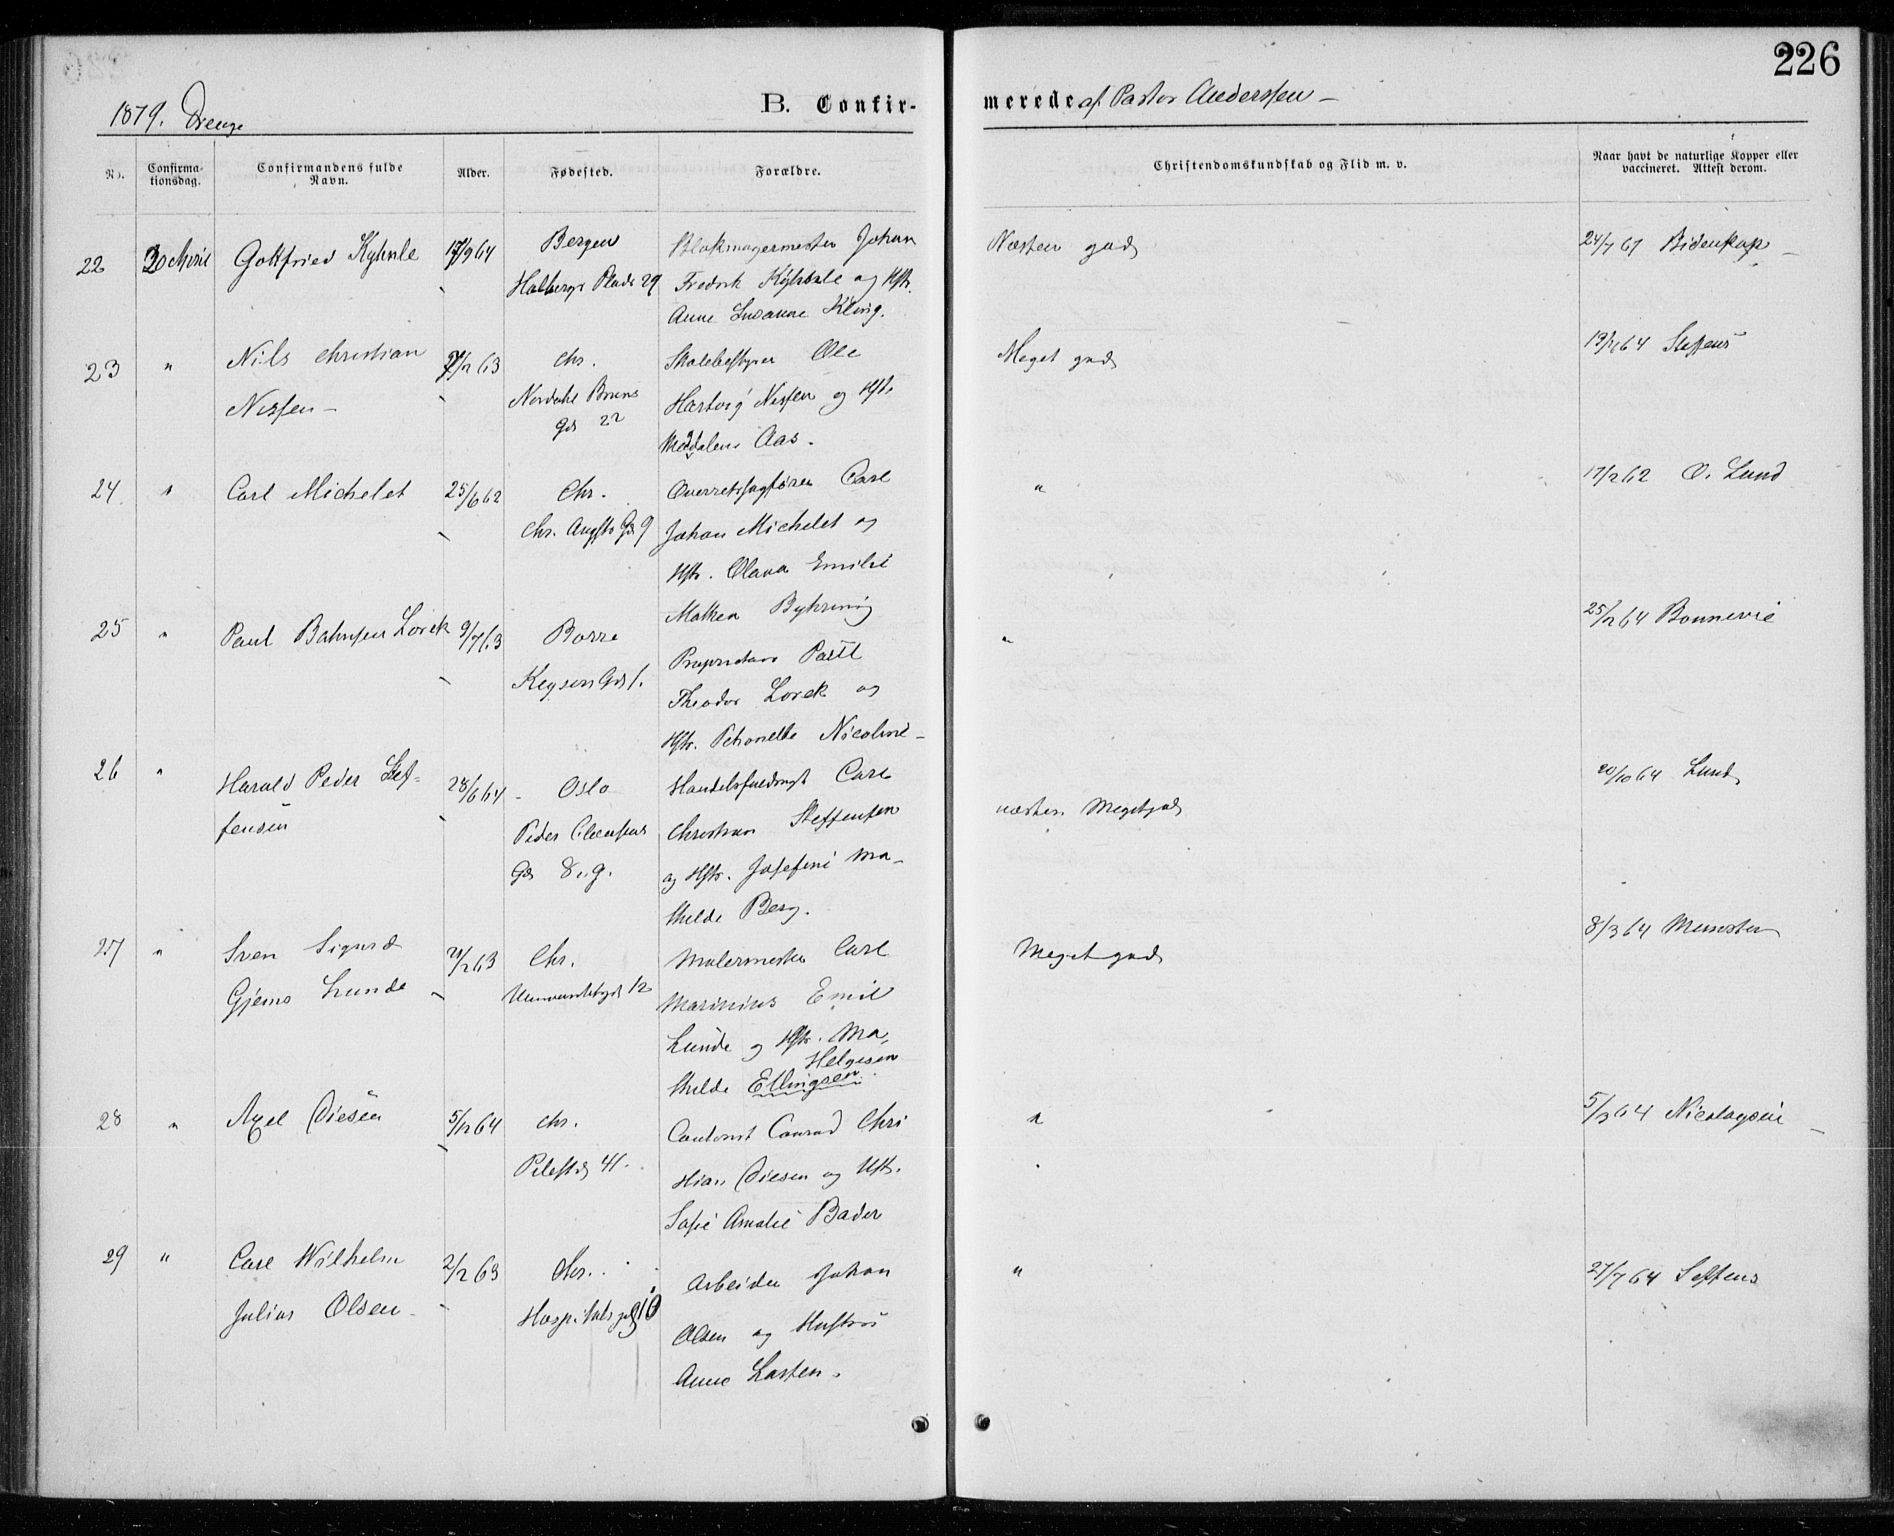 226
1879. Drenge
B. Confir-
merede af Pastor Anderssen –
No.
Confirma-
tionsdag.
Confirmandens fulde
Navn.
Alder.
Fødested.
Forældre.
Christendomskundskab og Flid m. v.
Naar havt de naturlige Kopper eller
vaccineret. Attest derom.
22 20 April Gottfried Kyhnle 17/9 64 Bergen
Holbergs Plads 29
Blokmagermester Johan
Fredrik Kyhnle og Hstr.
Anne Susanne Kling.
Næsten god
24/7 67 Bidenkap –
23 " Nils Christian
Nissen –
Chr.
Nordahl Bruns
Gd 22
Skolebestyrer Ole
Hartvig Nissen og Hstr.
Magdalene Aas.
Meget god
64 Steffens
24 " Carl Michelet 25/6 62 Chr.
Chr. Augsts Gd 9
Overretssagfører Carl
Johan Michelet og
Hstr. Olava Emilie
Mathea Bythning
"
17/12 62 O. Lund
25 " Paul Bahnsen Lorck 9/7 63 Borre
Keysers Gd 1.
Proprietær Paul
Theodor Lorck og
Hstr. Petronelle Nicoline –
"
25/12 64 Bonnevie
26 " Harald Peder Stef-
fensen
28/6 64 – Oslo
Peder Clausens
Gd 8.
Handelsfuldmgt Carl
Christian Steffensen
og Hstr. Josefine Ma-
thilde Berg.
næsten Megetgod
20/10 64 Lund
27 " Sven Sigurd
Gjems Lunde
21/12 63 Chr.
Universitetsgd 12
Malermester Carl
Marinius Emil
Lunde og Hstr. Ma-
Helgesen
thilde Ellingsen.
Meget god
8/3 64 Munster
28 " Axel Diesen 5/12 64 Chr.
Pilestd 41.
Contorist Conrad Chri
stian Diesen og Hstr.
Sofie Amalie Bader
"
5/3 64 Nicolaysen –
29 " Carl Wilhelm
Julius Olsen –
2/12 63 Chr.
Hospitalsgd 10
Arbeider Johan
Olsen og Hustru
Anne Larsen.
"
27/7 64 Steffens